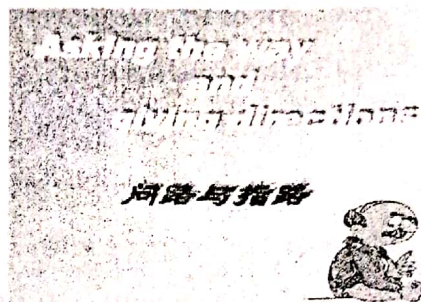 Asking the way
and
giving directions
问路与指路